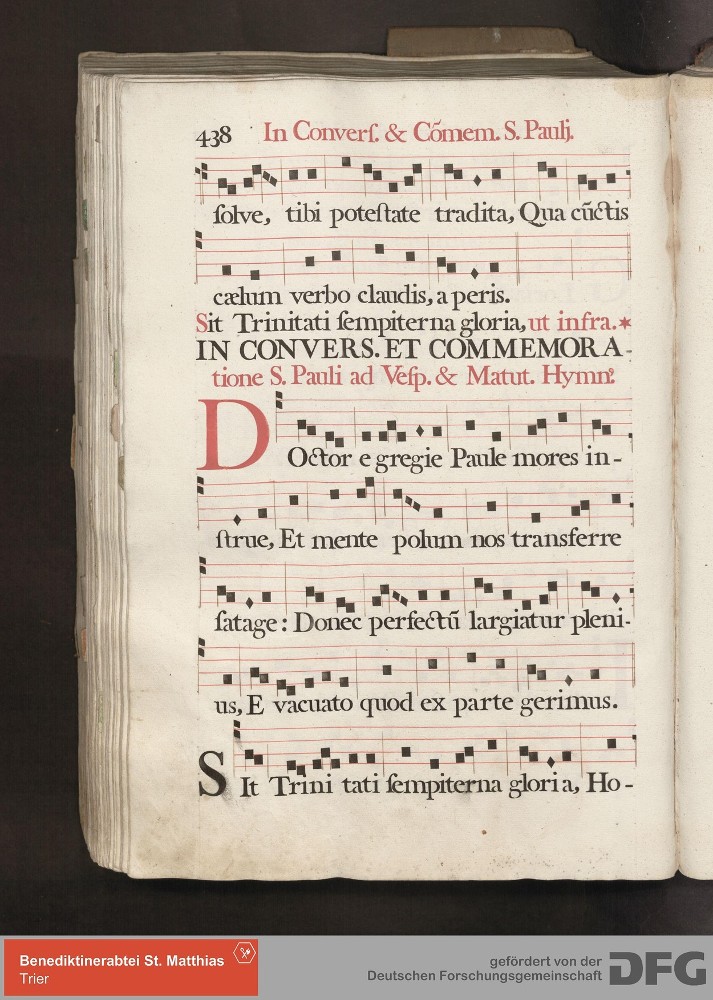 438 In Converſ. & Cōmem. S. Paulj.
ſolve, tibi poteſtate tradita, Qua cūctis
cælum verbo claudis, a peris.
Sit Trinitati ſempiterna gloria, ut infra.*
IN CONVERS. ET COMMEMORA-
tione S. Pauli ad Veſp. & Matut. Hymn9.
Doctor e gregie Paule mores in-
ſtrue, Et mente polum nos transferre
ſatage: Donec perfectū largiatur pleni-
us, E vacuato quod ex parte gerimus.
SIt Trini tati ſempiterna gloria, Ho-
Benediktinerabtei St. Matthias
Trier
gefördert von der
Deutschen Forschungsgemeinschaft DFG